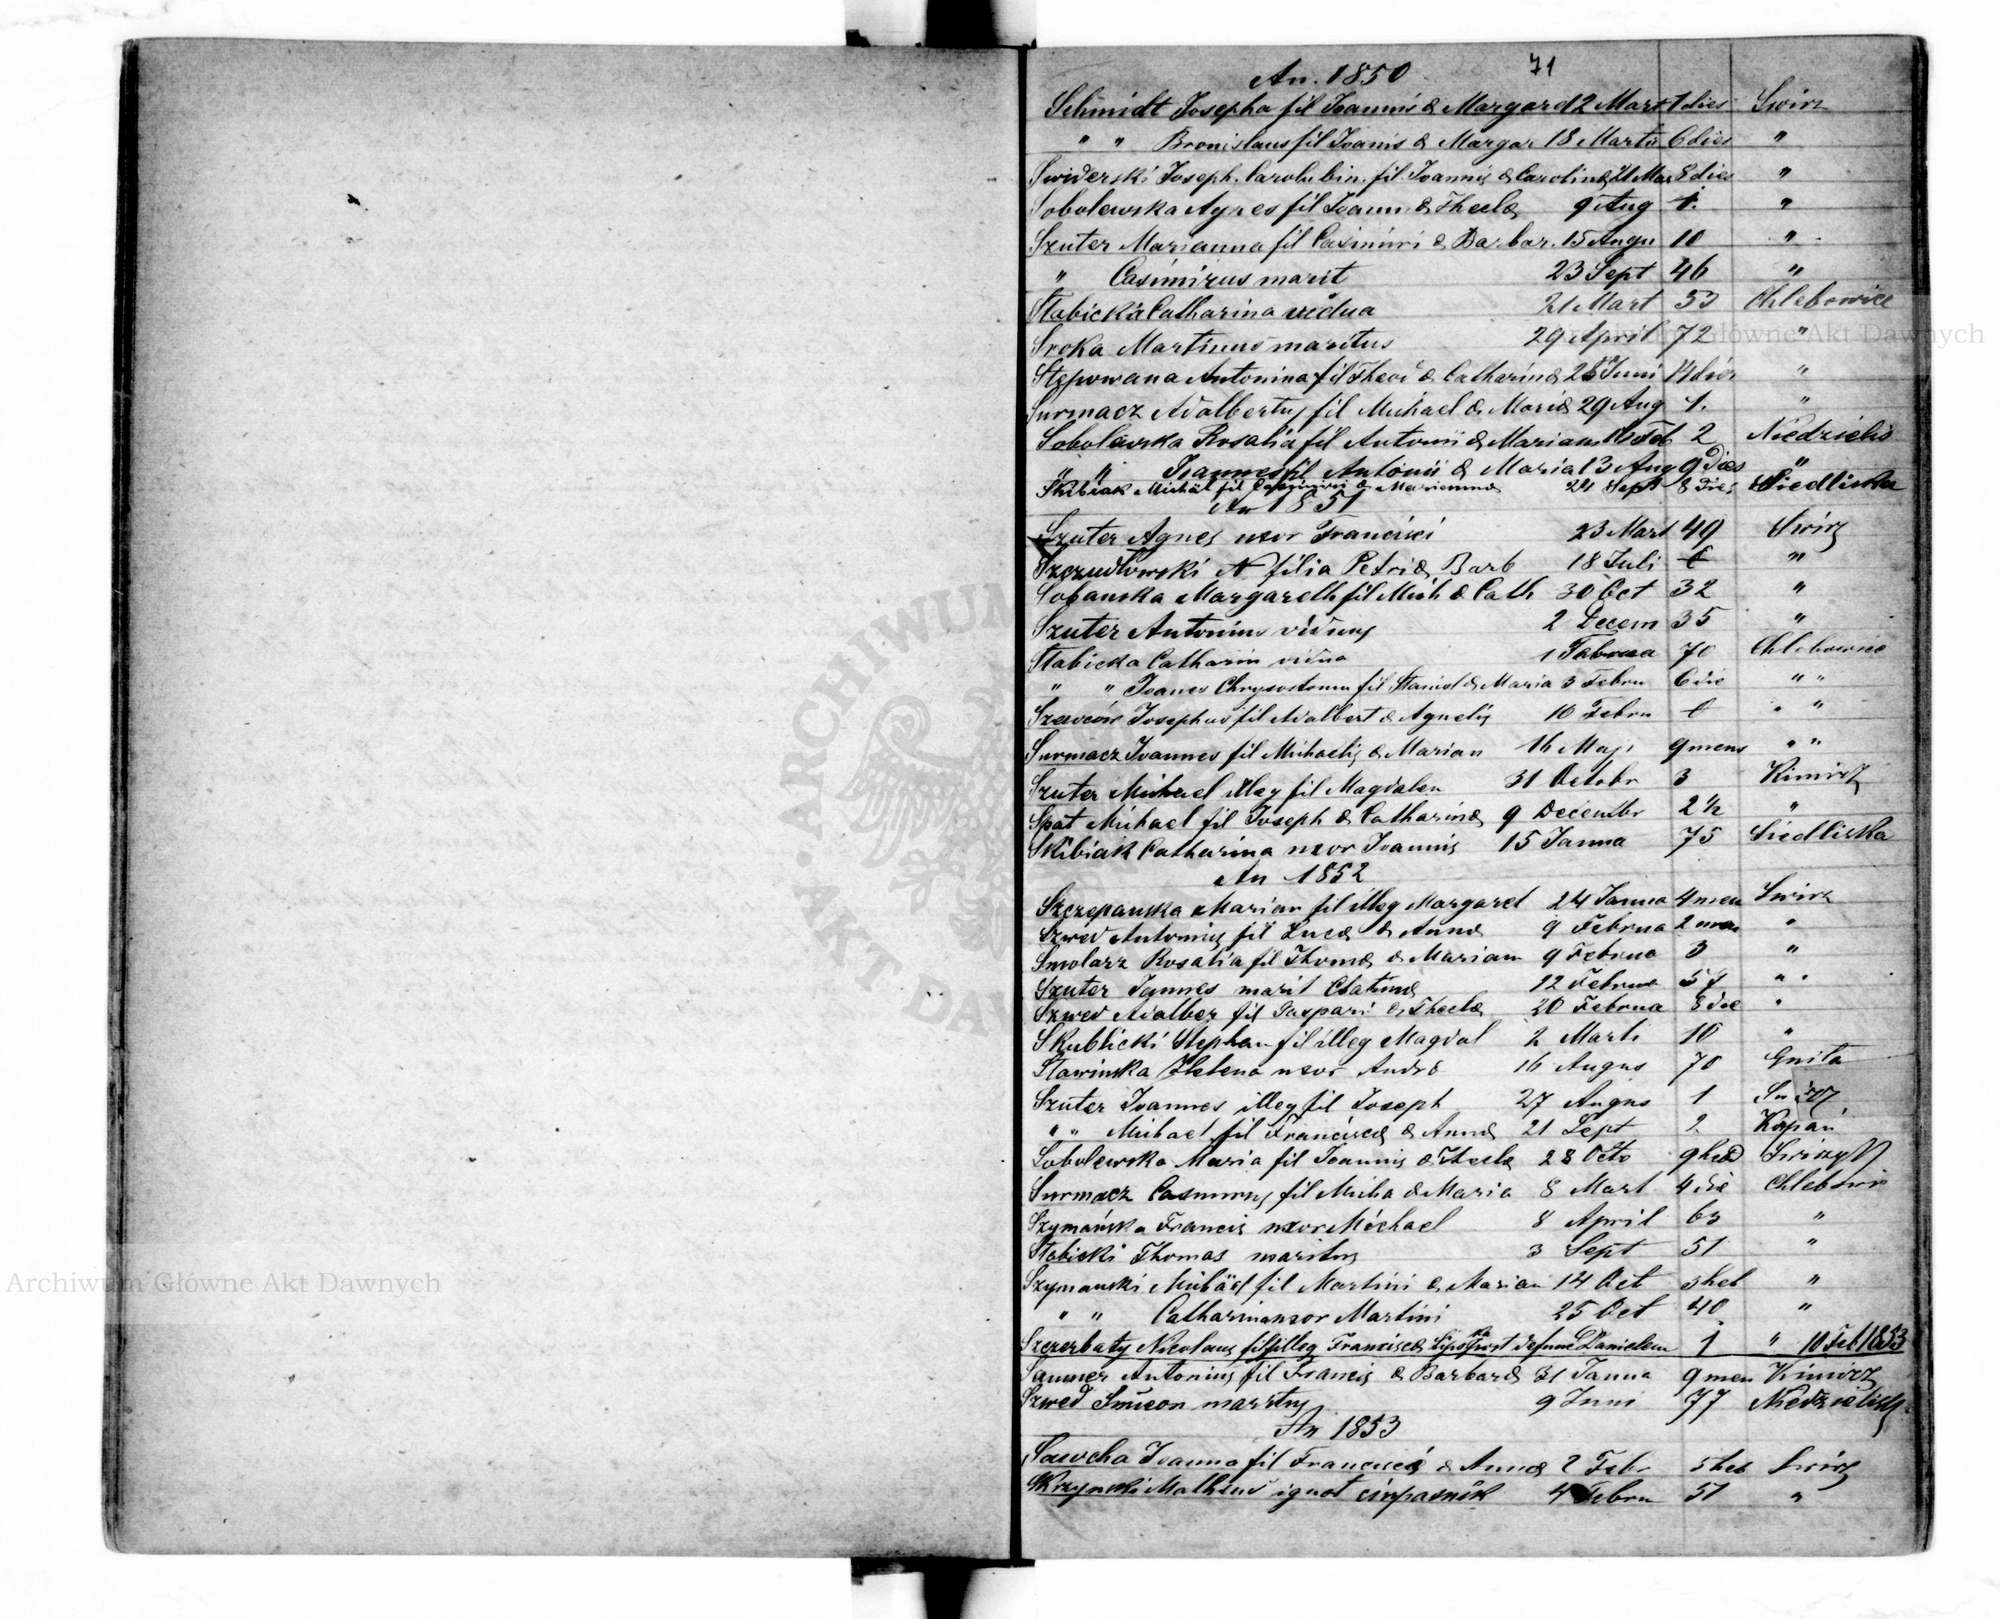 71
An. 1850
Schmidt Josepha fil Joannis & Margard 2 Mart 1 dies Swirz
" " Bronislaus fil Joanis & Margar 18 Martii 6 dies "
Swiderski Joseph. fil. Joannis & Carolinæ 21 Mar 8 dies "
Sobolewska Agnes fil Joann & Theclæ 9 Aug "
Szuter Marianna fil Casimiri & Barbar. 15 Augu 10 "
" Casimirus marit 23 Sept 46 "
Stabicka Catharina vidua 21 Mart 53 Chlebowice
Sroka Martinus maritus 29 April 72 "
Antonina fil & Catharinæ 28 Juni 14 dies "
Surmacz Adalbertus fil Michael & Mariæ 29 Aug 1. "
Sobolewska Rosalia fil Antonii & Mariann Feb 2
" " Joannes fil Antonii & Maria 13 Aug 9 Dies "
Skibiak Michäl fil Casimiri & Mariannæ 24 Sept 8 Dies Siedliska
An 1851
Szuter Agnes uxor Francisci 23 Mart 49 Swirz
Szczudłowski N filia Petri & Barb 18 Juli "
Sobanska Margareth fil Mich & Cath 30 Oct 32 "
Szuter Antonius viduus 2 Decem 35 "
Stabicka Catharin vidua 1 Februa 70 Chlebowice
" " Joanes Chrysostomus fil Stanisl & Maria 3 Febru 6 die " "
Josephus fil Adalbert & Agnetis 10 Febru " "
Surmacz Joannes fil Michaelis & Marian 16 Maji 9 mens " "
Szuter Michael illeg fil Magdalen 31 Octobr 3 Kimirz
Spat Michael fil Joseph & Catharinæ 9 Decembr 2 ½ "
Skibiak Catharina uxor Joannis 15 Janua 75 Siedliska
An 1852
Szczepanska Marian fil illeg Margaret 24 Janua 4 men Swirz
Szwed Antonius fil Lucæ & Annæ 9 Februa 2 men "
Smolarz Rosalia fil Thomæ & Mariann 9 Februa 3 "
Szuter Joannes marit 12 Februa "
Szwed Adalber fil Caspari & Theclæ 20 Februa 8 die "
Skublicki Stephan fil illeg Magdal 2 Marti 10 "
Stawinska Helena uxor 16 Augus 70 Gnita
Szuter Joannes illeg fil Joseph 27 Augus 1 Swirz
" " Michael fil Franciscæ & Annæ 21 Sept 2 Kopań
Sobolewska Maria fil Joannis & Theclæ 28 Octo 9 hed
Surmacz Casimirus fil Micha & Maria 8 Mart 4 die Chlebowi
Szymańska Francis uxor Michael 8 April 63 "
Stabicki Thomas maritus 3 Sept 51 "
Szymanski Michäel fil Martini & Marian 14 Oct 3 heb "
" " Catharina uxor Martini 25 Oct 40 "
Szczerbaty Nicolaus fil illeg Franciscæ 1 " 10 Feb 1853
Antonius fil Francis & Barbaræ 31 Janua 9 men Kimirz
Szwed Simeon maritus 9 Juni 77
An 1853
Sawcha Joanna fil Francisci & Annæ 2 Febr 3 heb Swirz
Skrzynski Matheus ignot 4 Febru 51 "
ARCHIWUM
AKT DAW
Archiwum Główne Akt Dawnych
Archiwum Główne Akt Dawnych